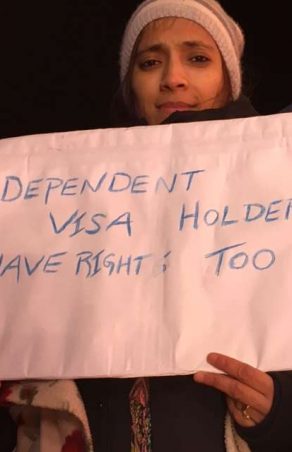 DEPENDENT
VISA HOLDER
HAVE RIGHTS TOO